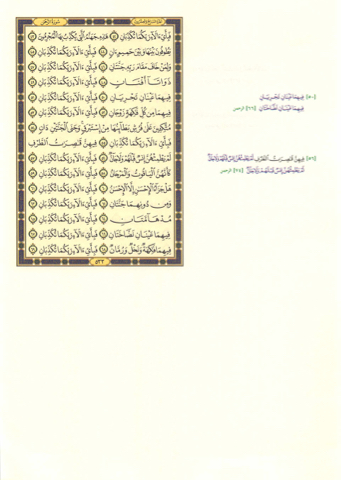 الجزء السابع والعشرون سورة الرحمن
فَبِأَيِّ ءَالَآءِ رَبِّكُمَا تُكَذِّبَانِ ٤٢ هَٰذِهِۦ جَهَنَّمُ ٱلَّتِى يُكَذِّبُ بِهَا ٱلْمُجْرِمُونَ ٤٣
يَطُوفُونَ بَيْنَهَا وَبَيْنَ حَمِيمٍ ءَانٍ ٤٤ فَبِأَيِّ ءَالَآءِ رَبِّكُمَا تُكَذِّبَانِ ٤٥
وَلِمَنْ خَافَ مَقَامَ رَبِّهِۦ جَنَّتَانِ ٤٦ فَبِأَيِّ ءَالَآءِ رَبِّكُمَا تُكَذِّبَانِ ٤٧
ذَوَاتَآ أَفْنَانٍ ٤٨ فَبِأَيِّ ءَالَآءِ رَبِّكُمَا تُكَذِّبَانِ ٤٩
فِيهِمَا عَيْنَانِ تَجْرِيَانِ ٥٠ فَبِأَيِّ ءَالَآءِ رَبِّكُمَا تُكَذِّبَانِ ٥١
فِيهِمَا مِن كُلِّ فَٰكِهَةٍ زَوْجَانِ ٥٢ فَبِأَيِّ ءَالَآءِ رَبِّكُمَا تُكَذِّبَانِ ٥٣
مُتَّكِـِٔينَ عَلَىٰ فُرُشٍۭ بَطَآئِنُهَا مِنْ إِسْتَبْرَقٍ وَجَنَى ٱلْجَنَّتَيْنِ دَانٍ ٥٤
فَبِأَيِّ ءَالَآءِ رَبِّكُمَا تُكَذِّبَانِ ٥٥ فِيهِنَّ قَٰصِرَٰتُ ٱلطَّرْفِ
لَمْ يَطْمِثْهُنَّ إِنسٌ قَبْلَهُمْ وَلَا جَآنٌّ ٥٦ فَبِأَيِّ ءَالَآءِ رَبِّكُمَا تُكَذِّبَانِ ٥٧
كَأَنَّهُنَّ ٱلْيَاقُوتُ وَٱلْمَرْجَانُ ٥٨ فَبِأَيِّ ءَالَآءِ رَبِّكُمَا تُكَذِّبَانِ ٥٩
هَلْ جَزَآءُ ٱلْإِحْسَٰنِ إِلَّا ٱلْإِحْسَٰنُ ٦٠ فَبِأَيِّ ءَالَآءِ رَبِّكُمَا تُكَذِّبَانِ ٦١
وَمِن دُونِهِمَا جَنَّتَانِ ٦٢ فَبِأَيِّ ءَالَآءِ رَبِّكُمَا تُكَذِّبَانِ ٦٣
مُدْهَآمَّتَانِ ٦٤ فَبِأَيِّ ءَالَآءِ رَبِّكُمَا تُكَذِّبَانِ ٦٥
فِيهِمَا عَيْنَانِ نَضَّاخَتَانِ ٦٦ فَبِأَيِّ ءَالَآءِ رَبِّكُمَا تُكَذِّبَانِ ٦٧
فِيهِمَا فَٰكِهَةٌ وَنَخْلٌ وَرُمَّانٌ ٦٨ فَبِأَيِّ ءَالَآءِ رَبِّكُمَا تُكَذِّبَانِ ٦٩
٥٣٣
[٥٠] فِيهِمَا عَيْنَانِ تَجْرِيَانِ
فِيهِمَا عَيْنَانِ نَضَّاخَتَانِ [٦٦] الرحمن
[٥٦] فِيهِنَّ قَٰصِرَٰتُ ٱلطَّرْفِ لَمْ يَطْمِثْهُنَّ إِنسٌ قَبْلَهُمْ وَلَا جَآنٌّ
لَمْ يَطْمِثْهُنَّ إِنسٌ قَبْلَهُمْ وَلَا جَآنٌّ [٧٤] الرحمن